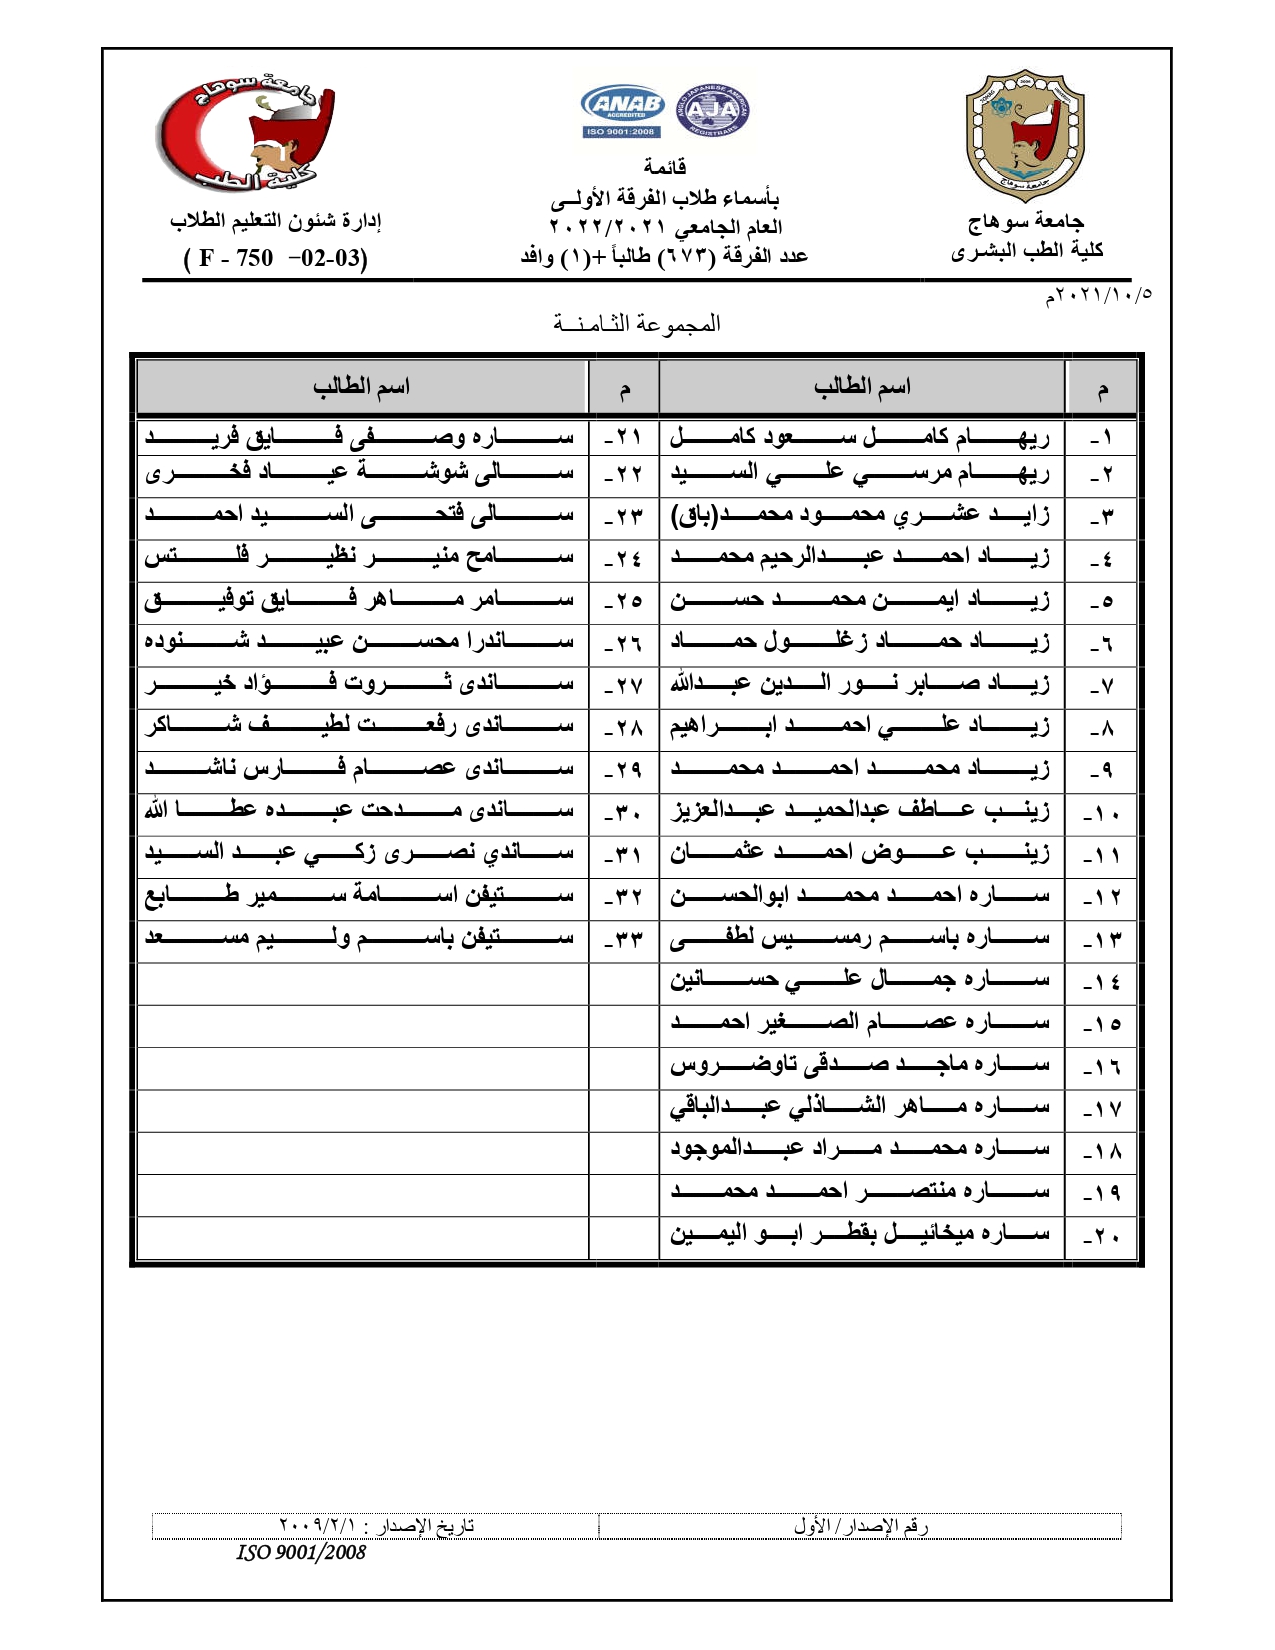 جامعة سوهاج
كلية الطب
ANAB
ACCREDITED
ISO 9001:2008
ANGLO JAPANESE AMERICAN
AJA
REGISTRARS
جامعة سوهاج
جامعة سوهاج
كلية الطب البشرى
قائمة
بأسماء طلاب الفرقة الأولى
العام الجامعي ٢٠٢٢/٢٠٢١
عدد الفرقة (٦٧٣) طالباً +(١) وافد
إدارة شئون التعليم الطلاب
( F - 750 –02-03)
٢٠٢١/١٠/٥م
المجموعة الثامنة
م اسم الطالب م اسم الطالب
١- ريهام كامل سعود كامل ٢١- ساره وصفى فايق فريد
٢- ريهام مرسي علي السيد ٢٢- سالى شوشة عياد فخرى
٣- زايد عشري محمود محمد(باق) ٢٣- سالى فتحى السيد احمد
٤- زياد احمد عبدالرحيم محمد ٢٤- سامح منير نظير فلتس
٥- زياد ايمن محمد حسن ٢٥- سامر ماهر فايق توفيق
٦- زياد حماد زغلول حماد ٢٦- ساندرا محسن عبيد شنوده
٧- زياد صابر نور الدين عبدالله ٢٧- ساندى ثروت فؤاد خير
٨- زياد علي احمد ابراهيم ٢٨- ساندى رفعت لطيف شاكر
٩- زياد محمد احمد محمد ٢٩- ساندى عصام فارس ناشد
١٠- زينب عاطف عبدالحميد عبدالعزيز ٣٠- ساندى مدحت عبده عطا الله
١١- زينب عوض احمد عثمان ٣١- ساندي نصرى زكي عبد السيد
١٢- ساره احمد محمد ابوالحسن ٣٢- ستيفن اسامة سمير طايع
١٣- ساره باسم رمسيس لطفى ٣٣- ستيفن باسم وليم مسعد
١٤- ساره جمال علي حسانين
١٥- ساره عصام الصغير احمد
١٦- ساره ماجد صدقى تاوضروس
١٧- ساره ماهر الشاذلي عبدالباقي
١٨- ساره محمد مراد عبدالموجود
١٩- ساره منتصر احمد محمد
٢٠- ساره ميخائيل بقطر ابو اليمين
رقم الإصدار/ الأول تاريخ الإصدار : ٢٠٠٩/٢/١
ISO 9001/2008